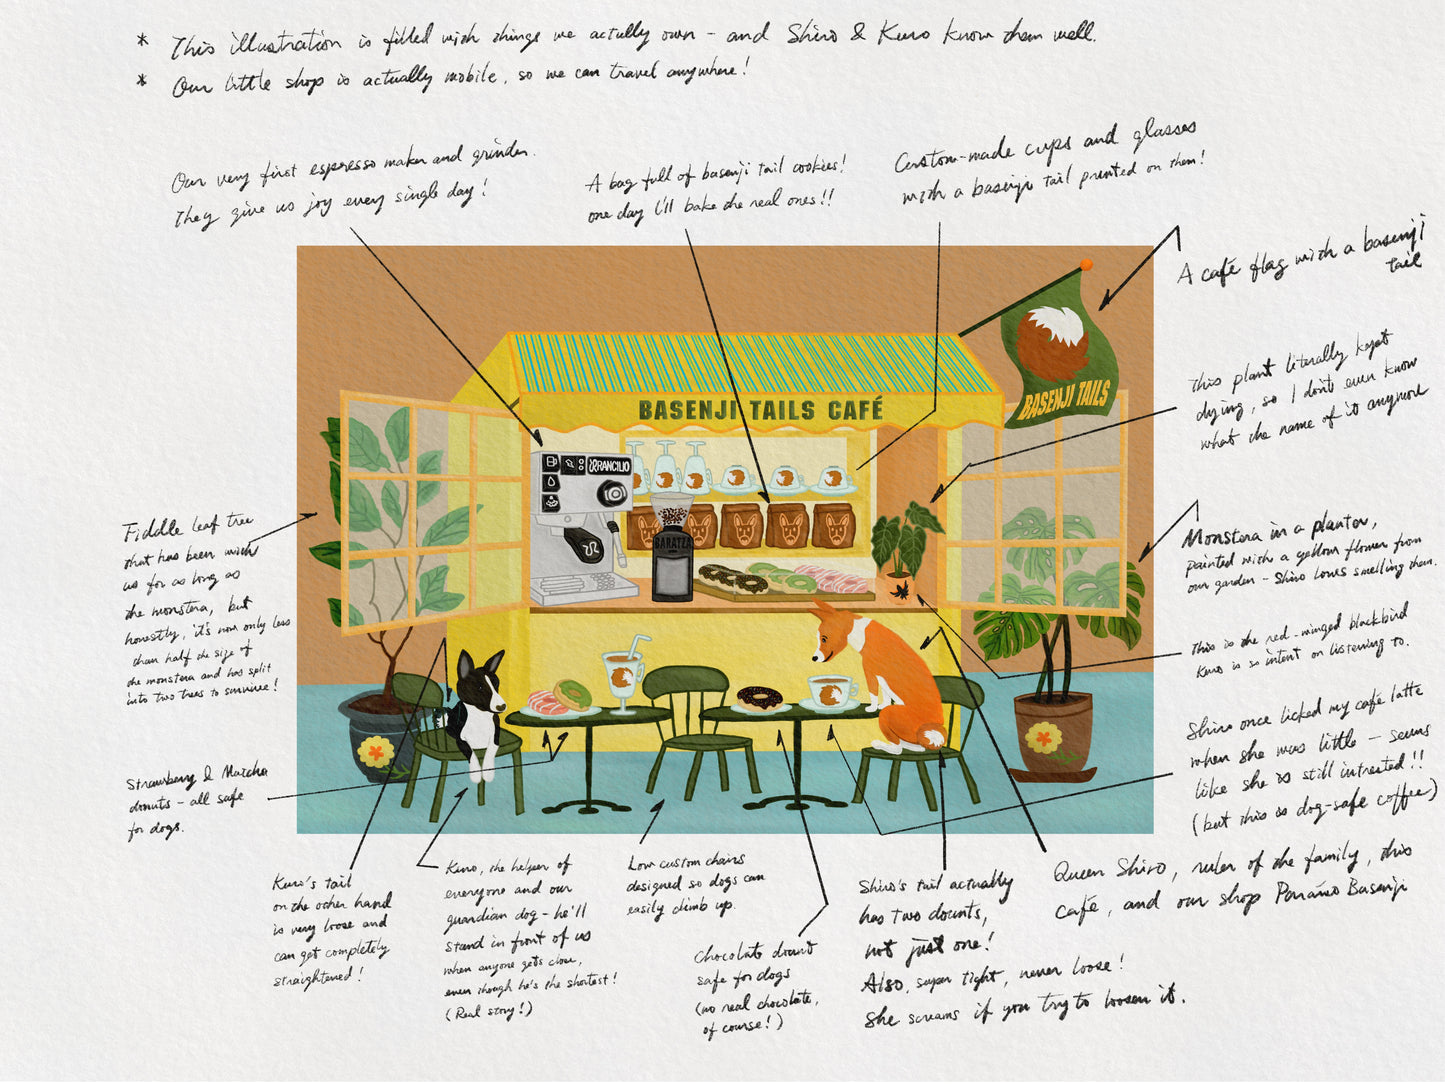 * This illustration is filled with things we actully own - and Shiro & Kuro know them well.
* Our little shop is actually mobile, so we can travel anywhere!
Our very first espresso maker and grinder.
They give us joy every single day!
A bag full of basenji tail cookies!
one day I'll bake the real ones!!
Custom-made cups and glasses
with a basenji tail printed on them!
A café flag with a basenji
tail
BASENJI TAILS
BASENJI TAILS CAFÉ
RANCILIO
BARATZA
This plant literally kept
dying, so I don't even know
what the name of it anymore
Fiddle leaf tree
that has been with
us for as long as
the monstera, but
honestly, it's now only less
than half the size of
the monstera and has split
into two trees to survive!
Monstera in a planter,
painted with a yellow flower from
our garden - Shiro loves smelling them.
This is the red-winged blackbird
Kuro is so intent on listening to.
Shiro once licked my café latte
when she was little - seems
like she is still intrested!!
(but this is dog-safe coffee)
Strawberry & Matcha
donuts - all safe
for dogs.
Kuro's tail
on the other hand
is very loose and
can get completely
straightened!
Kuro, the helper of
everyone and our
guardian dog - he'll
stand in front of us
when anyone gets close,
even though he's the shortest!
(Real story!)
Low custom chairs
designed so dogs can
easily climb up.
Chocolate donut
safe for dogs
(no real chocolate,
of course!)
Shiro's tail actually
has two donuts,
not just one!
Also, super tight, never loose!
She screams if you try to loosen it.
Queen Shiro, ruler of the family, this
café, and our shop Basenji